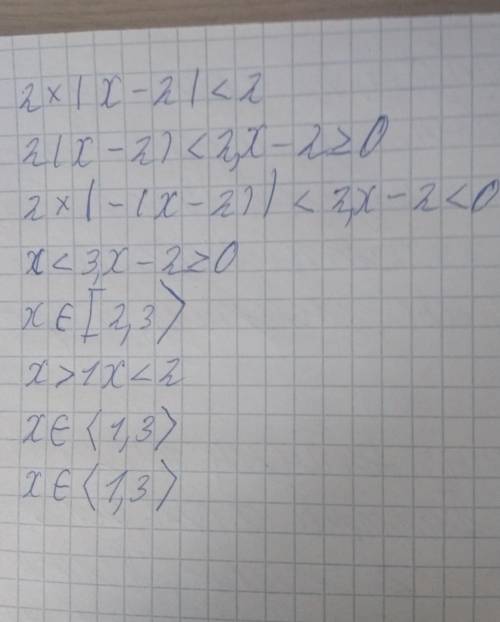 2×|x-2|<2
2(x-2)<2,x-2≥0
2×(-(x-2))<2,x-2<0
x<3,x-2≥0
x∈[2,3⟩
x>1x<2
x∈⟨1,3⟩
x∈⟨1,3⟩